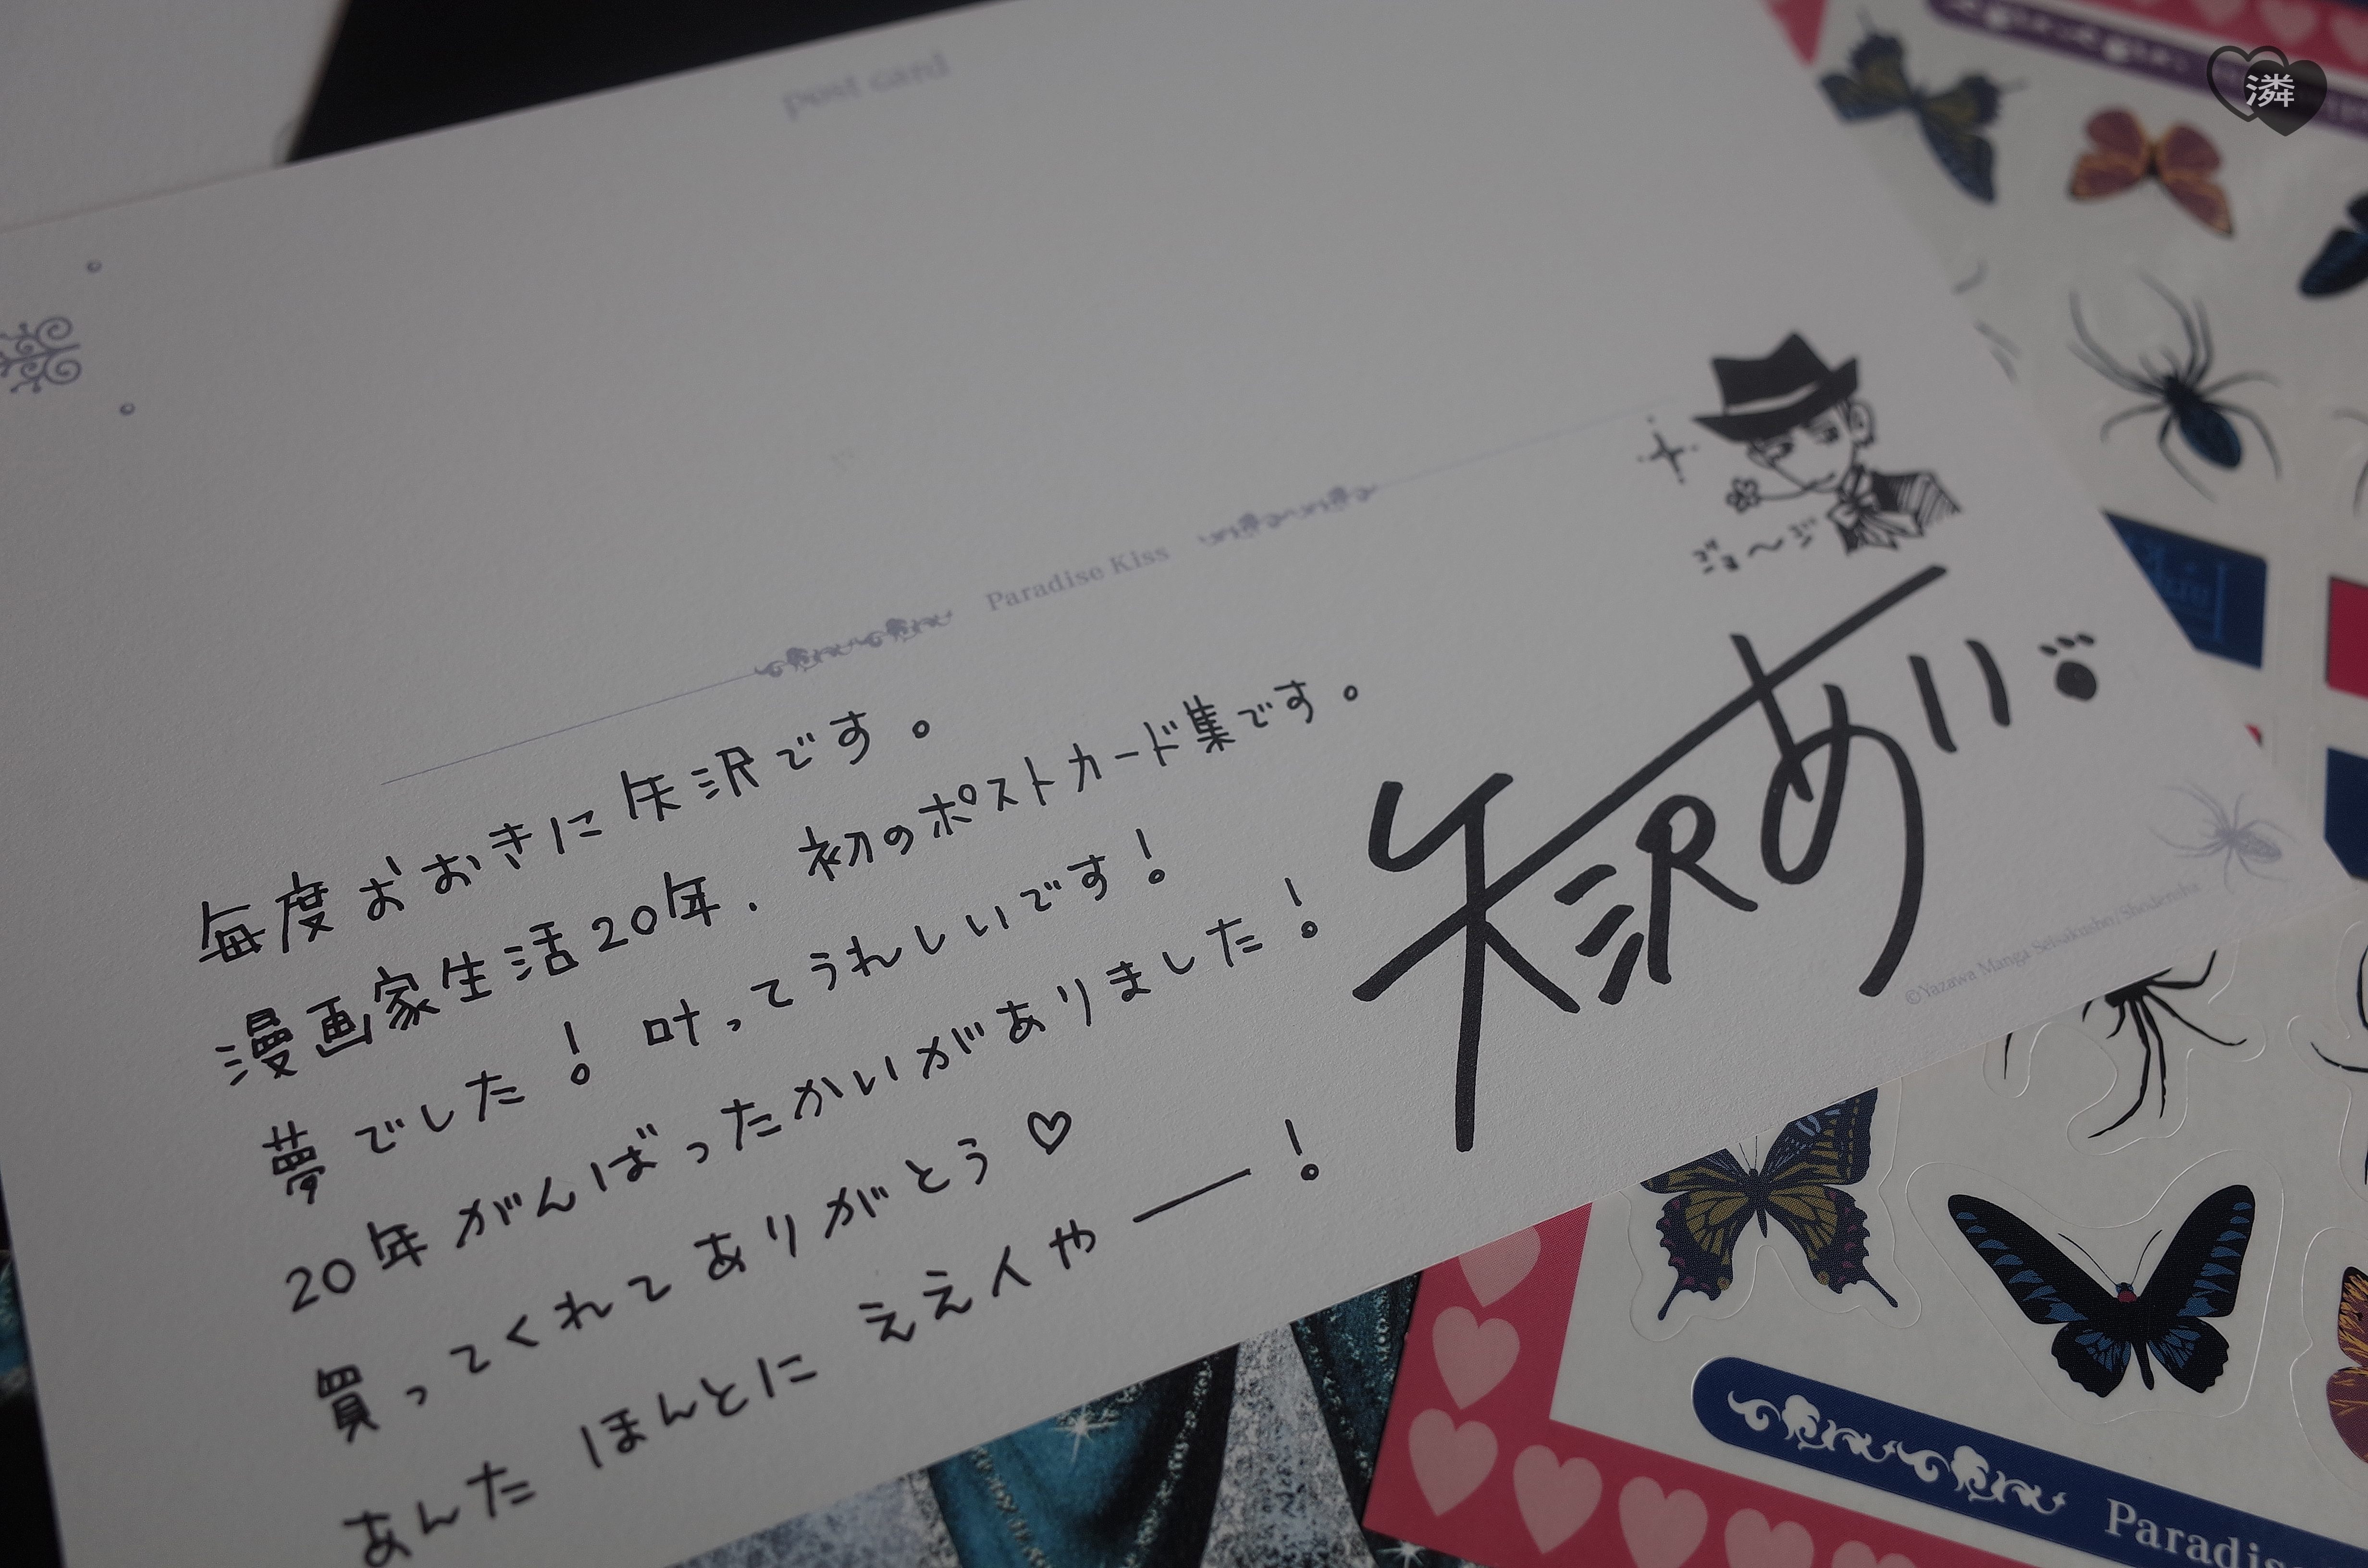 post card
潾
Paradise Kiss
ジョ〜ジ
毎度おおきに矢沢です。
漫画家生活20年．初のポストカード集です。
夢でした！叶ってうれしいです！
20年がんばったかいがありました！
買ってくれてありがとう♡
あんたほんとにええ人や――！
矢沢あい
©Yazawa Manga Seisakusho/Shodensha
Paradis